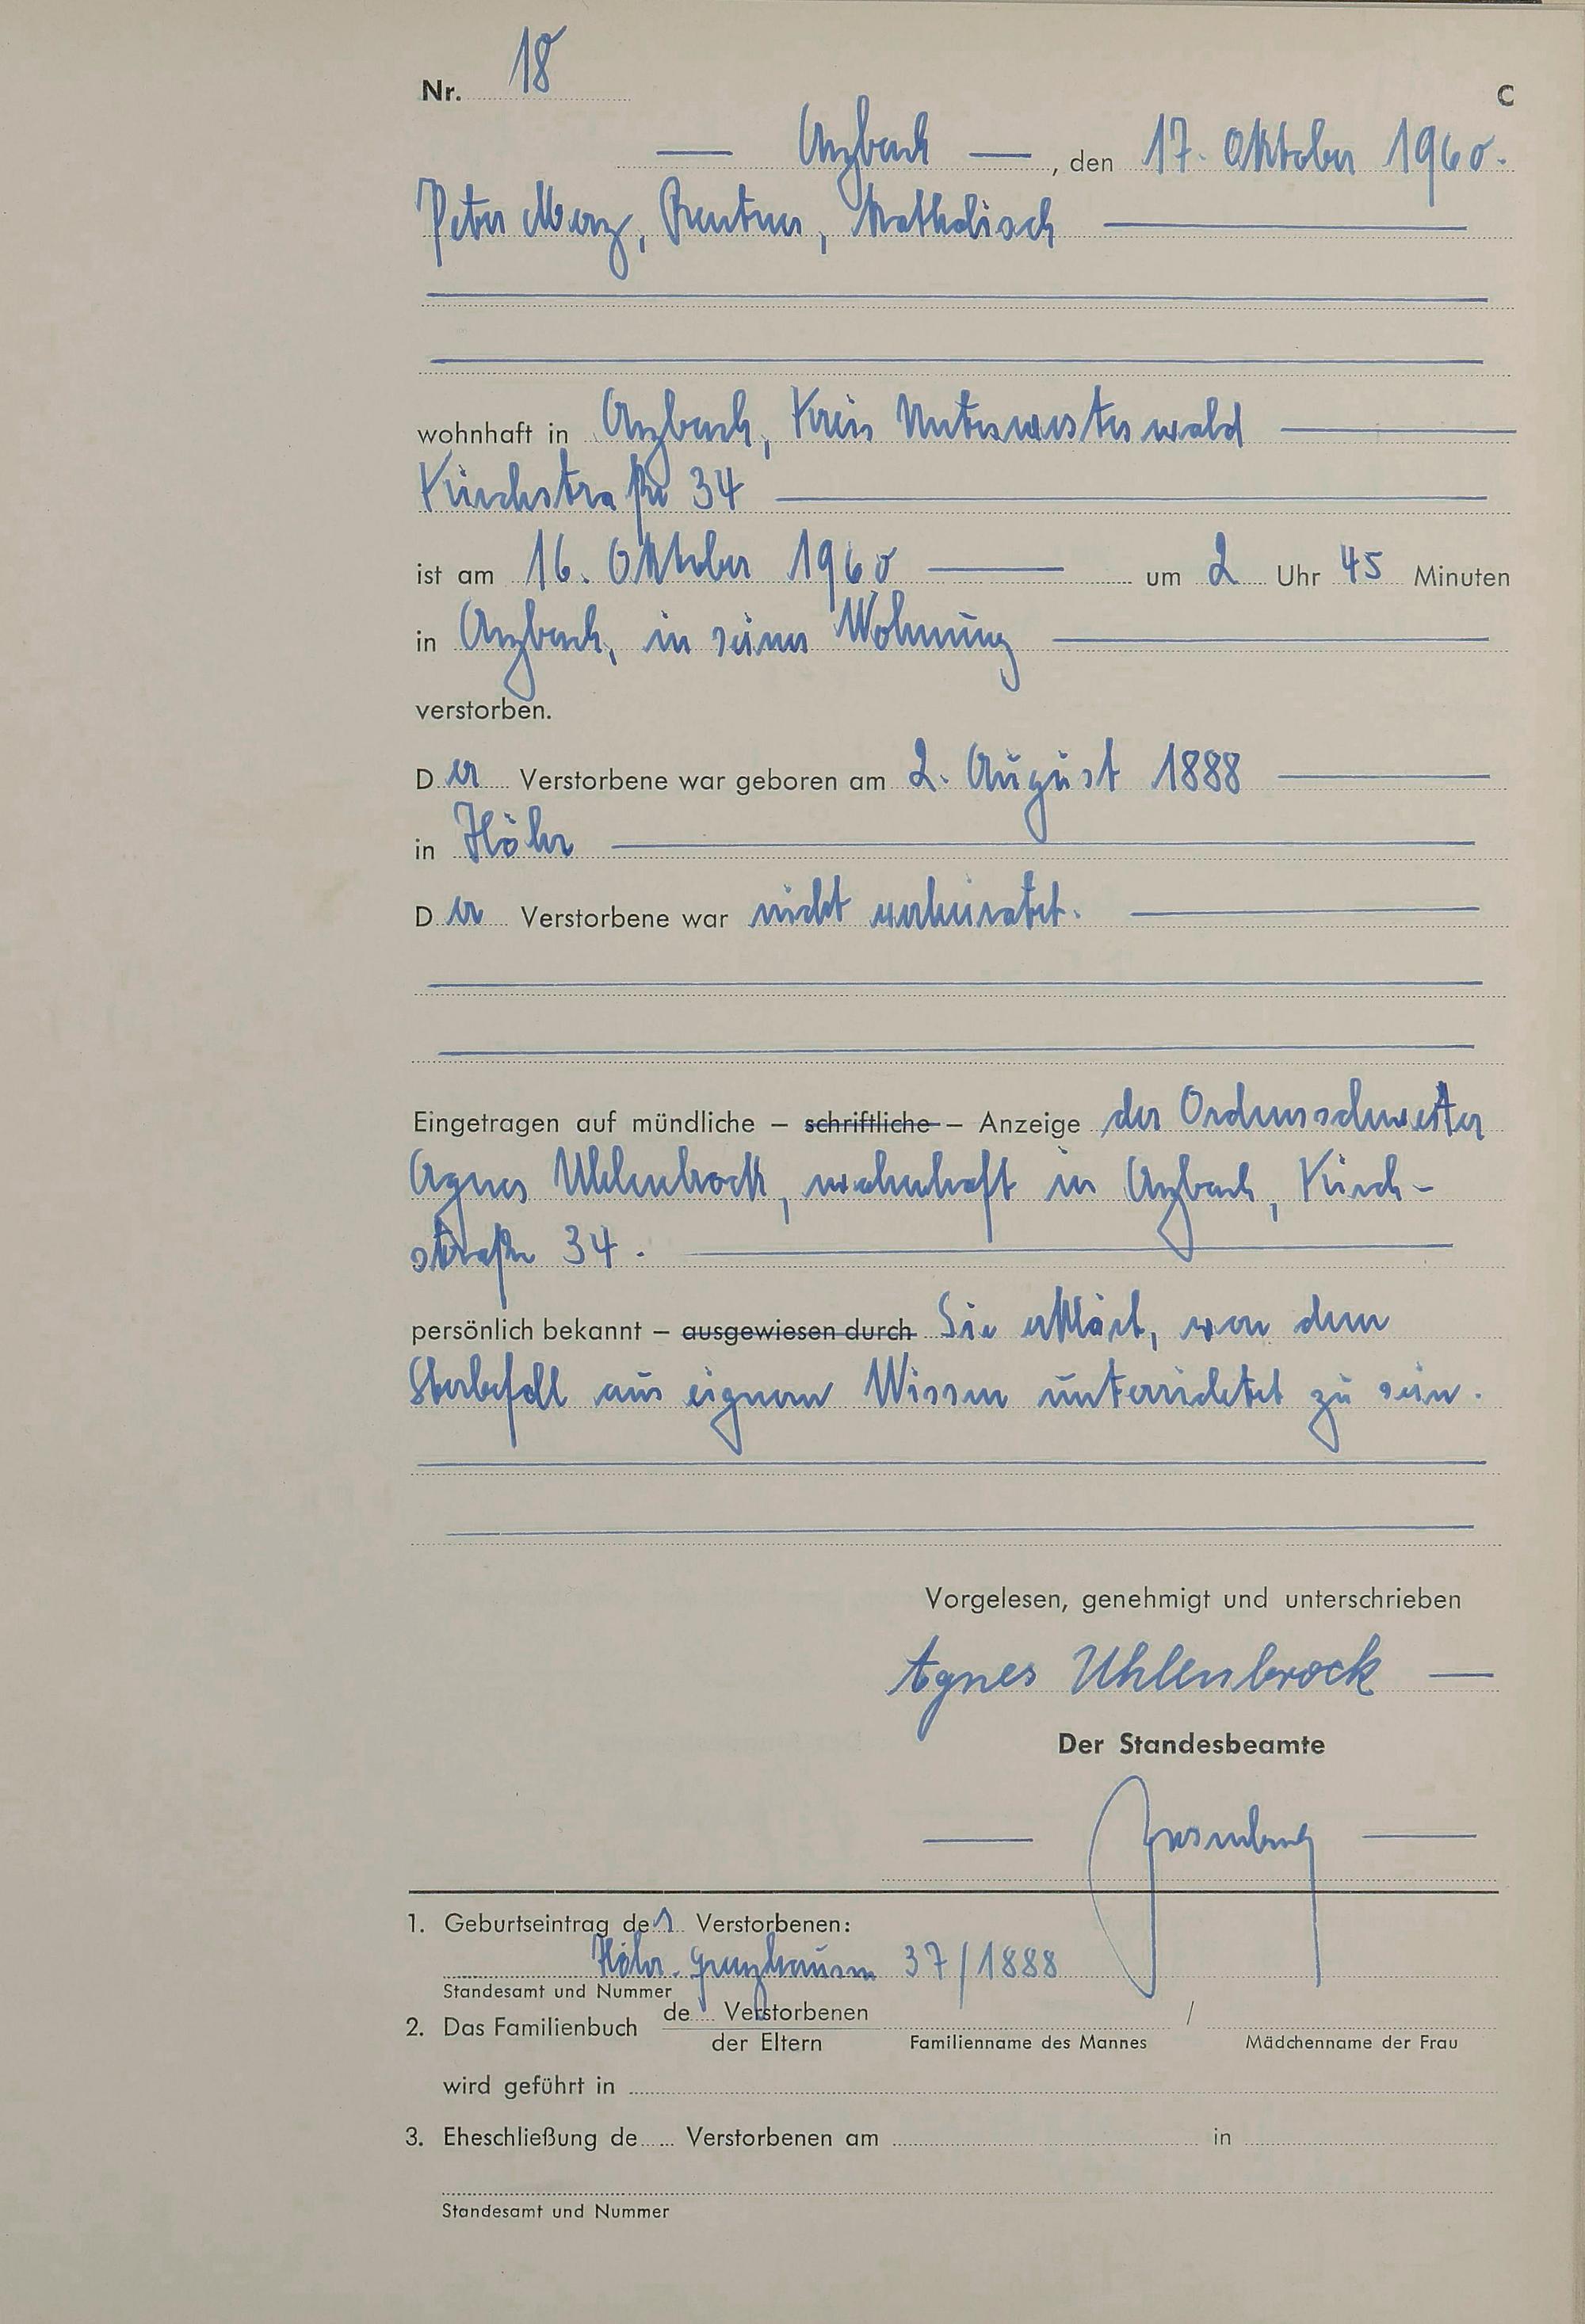 Nr. 18 C
— Arzbach —, den 17. Oktober 1960.
Peter Merz, Rentner, katholisch
wohnhaft in Arzbach, Kreis Unterwesterwald
Kirchstraße 34
ist am 16. Oktober 1960 um 2 Uhr 45 Minuten
in Arzbach, in seiner Wohnung
verstorben.
Der Verstorbene war geboren am 2. August 1888
in Höhr
Der Verstorbene war nicht verheiratet.
Eingetragen auf mündliche – schriftliche – Anzeige der Ordensschwester
Agnes Uhlenbrock, wohnhaft in Arzbach, Kirch-
straße 34.
persönlich bekannt – ausgewiesen durch Sie erklärt, von dem
Sterbefall aus eignem Wissen unterrichtet zu sein.
Vorgelesen, genehmigt und unterschrieben
Agnes Uhlenbrock —
Der Standesbeamte
1. Geburtseintrag des Verstorbenen:
Höhr-Grenzhausen 37/1888
Standesamt und Nummer
2. Das Familienbuch de.... Verstorbenen /
der Eltern Familienname des Mannes Mädchenname der Frau
wird geführt in
3. Eheschließung de...... Verstorbenen am in
Standesamt und Nummer